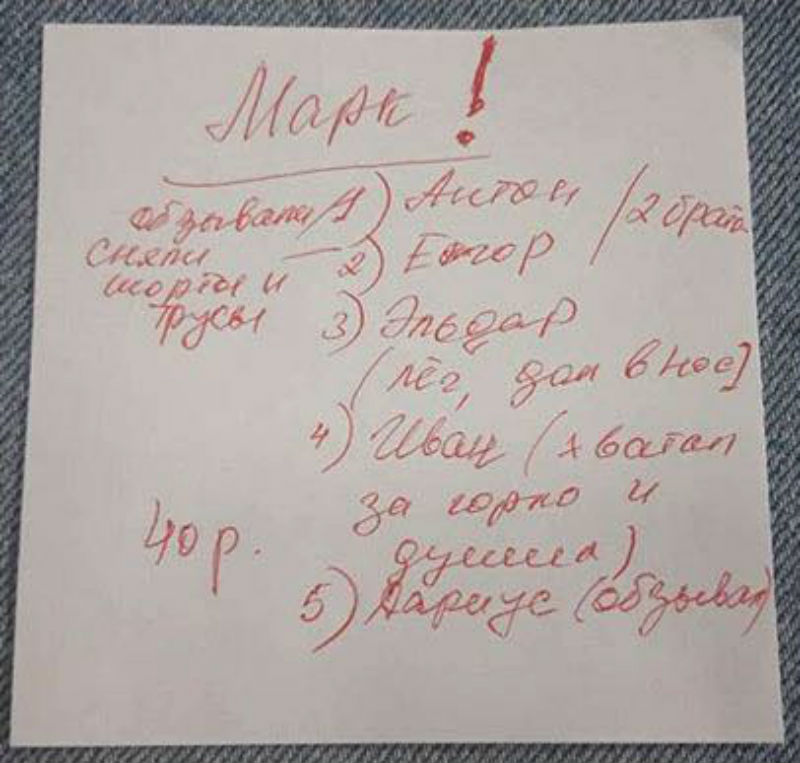 Марк!
обзывали 1) Антон / 2 брата
сняли — 2) Егор
шорты и
трусы 3) Эльдар
(лёг, дал в нос]
4) Иван (хватал
за горло и
40 р. душил)
5) Дариус (обзывал)